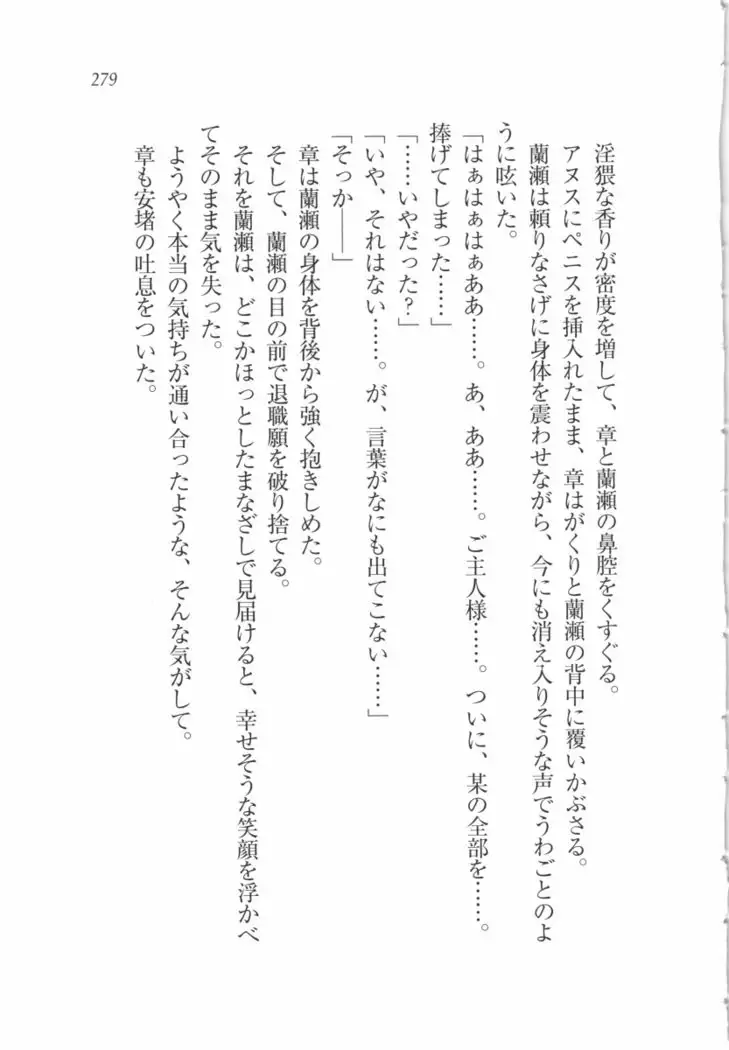 279
淫猥な香りが密度を増して、章と蘭瀬の鼻腔をくすぐる。
アヌスにペニスを挿入れたまま、章はがくりと蘭瀬の背中に覆いかぶさる。
蘭瀬は頼りなさげに身体を震わせながら、今にも消え入りそうな声でうわごとのよ
うに呟いた。
「はぁはぁはぁああ……。あ、ああ……。ご主人様……。ついに、某の全部を……。
捧げてしまった……」
「……いやだった？」
「いや、それはない……。が、言葉がなにも出てこない……」
「そっか――」
章は蘭瀬の身体を背後から強く抱きしめた。
そして、蘭瀬の目の前で退職願を破り捨てる。
それを蘭瀬は、どこかほっとしたまなざしで見届けると、幸せそうな笑顔を浮かべ
てそのまま気を失った。
ようやく本当の気持ちが通い合ったような、そんな気がして。
章も安堵の吐息をついた。